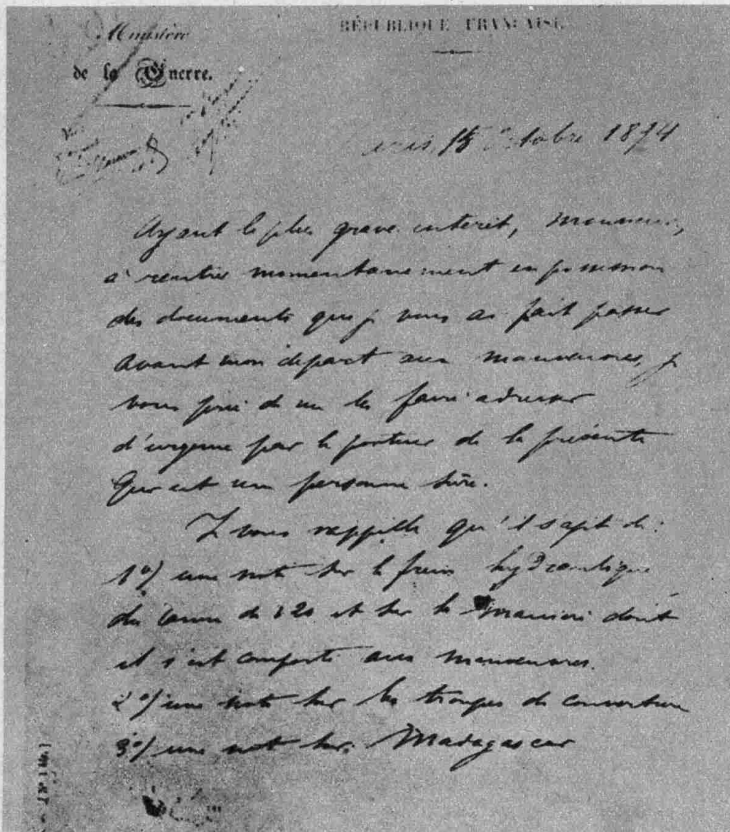 Ministère
RÉPUBLIQUE FRANÇAISE
de la Guerre.
Paris, 15 Octobre 1894
Ayant le plus grave intérêt, monsieur,
à rentrer momentanément en possession
des documents que je vous ai fait passer
avant mon départ aux manœuvres, je
vous prie de me les faire adresser
d'urgence par le porteur de la présente
qui est une personne sûre.
Je vous rappelle qu'il s'agit de:
1º) une note sur le frein hydraulique
du canon de 120 et sur la manière dont
il s'est comporté aux manœuvres.
2º) une note sur les troupes de couverture
3º) une note sur Madagascar